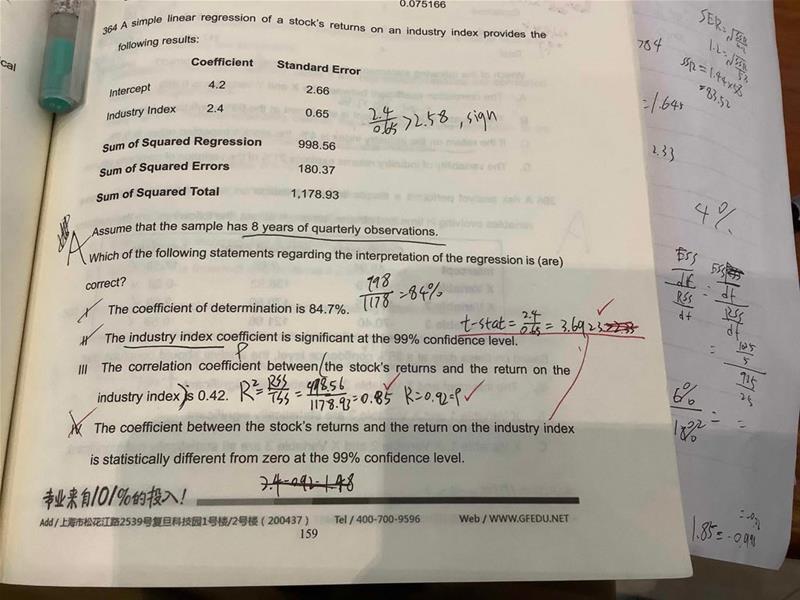 0.075166
364 A simple linear regression of a stock's returns on an industry index provides the
following results:
Coefficient Standard Error
Intercept 4.2 2.66
Industry Index 2.4 0.65
2.4/0.65 > 2.58, sign
Sum of Squared Regression 998.56
Sum of Squared Errors 180.37
Sum of Squared Total 1,178.93
Assume that the sample has 8 years of quarterly observations.
A
Which of the following statements regarding the interpretation of the regression is (are)
correct?
998/1178 = 84%
I The coefficient of determination is 84.7%.
t-stat = 2.4/0.65 = 3.6923
II The industry index coefficient is significant at the 99% confidence level.
ρ
III The correlation coefficient between the stock's returns and the return on the
industry index is 0.42. R² = RSS/TSS = 998.56/1178.93 = 0.85 R = 0.92 = ρ
IV The coefficient between the stock's returns and the return on the industry index
is statistically different from zero at the 99% confidence level.
专业来自101%的投入!
Add / 上海市松花江路2539号复旦科技园1号楼/2号楼（200437） Tel / 400-700-9596 Web / WWW.GFEDU.NET
159
ical
1.44×58
=83.52
784
=1.645
2.33
4%
ESS/df
RSS/df
1.85=-0.991